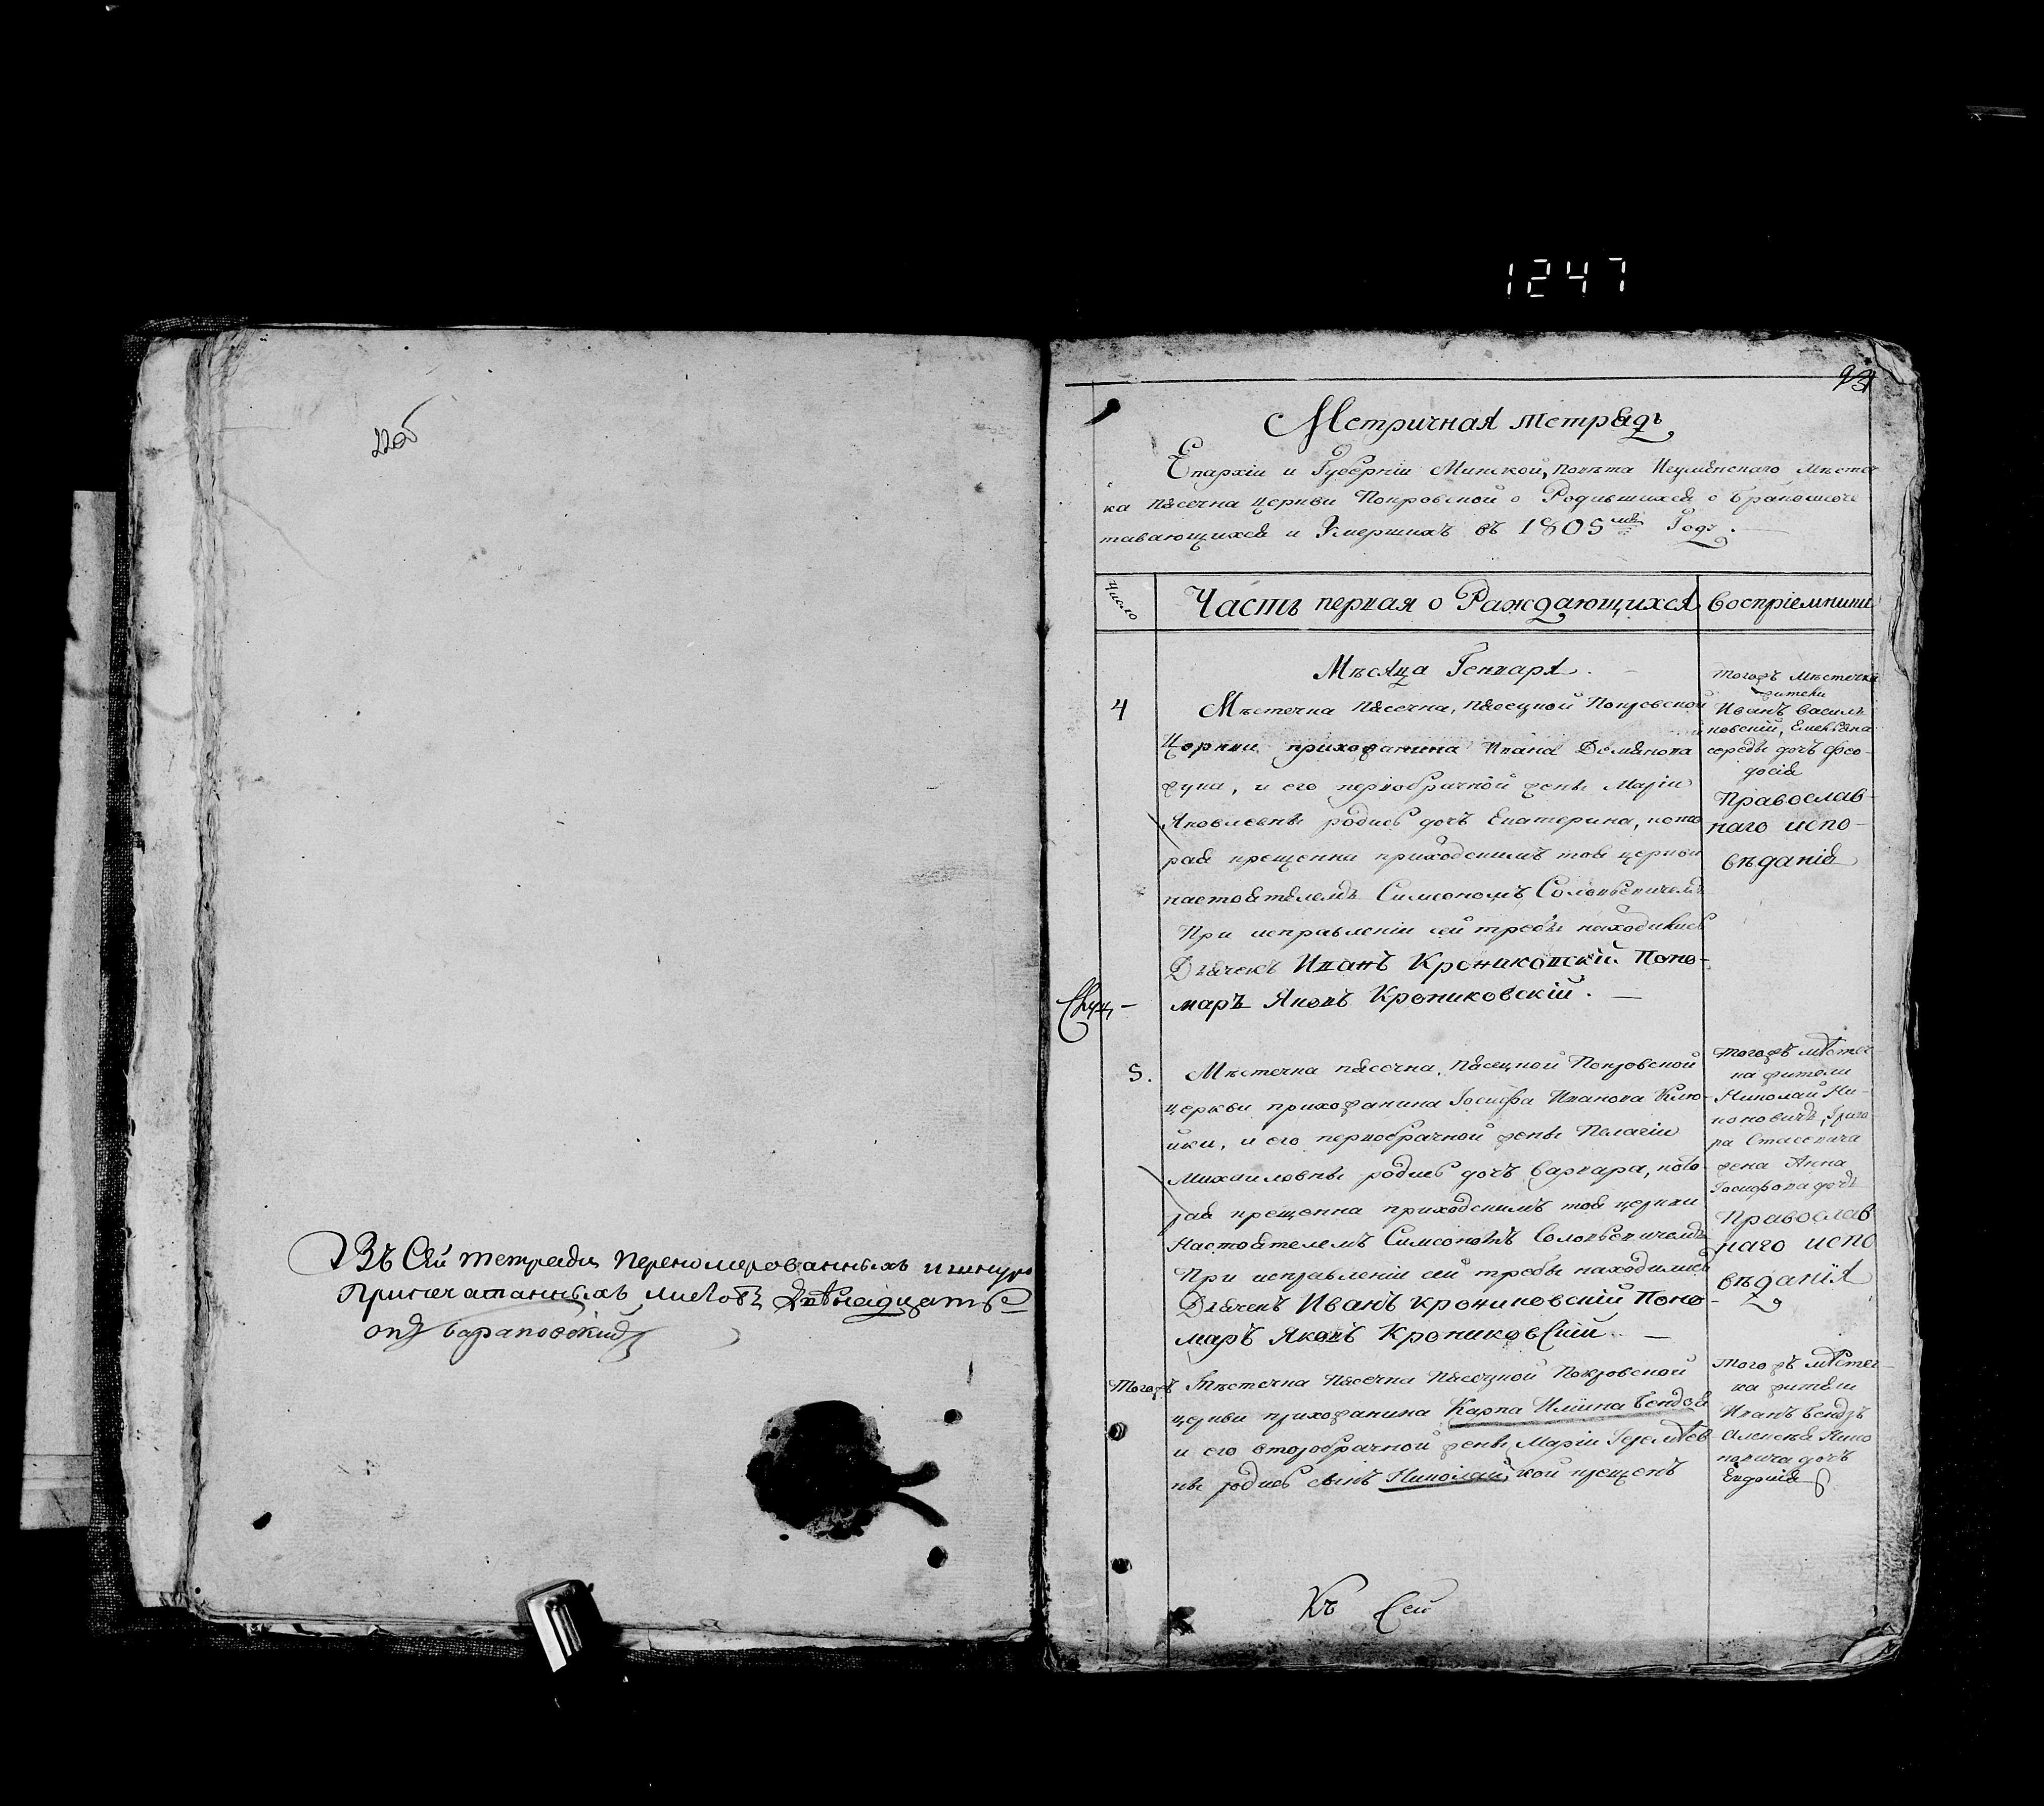 1247
22об
Въ сей тетради перенумерованныхъ и шнуро
припечатанныхъ листовъ двѣнадцать
Барановскій
Метричная тетрадь
Епархіи и Губерніи Минской, повѣта Игуменскаго мѣстеч
ка Пясечна церкви Покровской о Родившихся о бракосоче
тавающихся и Умершихъ въ 1805мъ Годѣ.
Число
Часть первая о Раждающихся
Воспріемники
Мѣсяца Генваря.
4
Мѣстечка Пясечна, Пясецкой Покровской
Церкви прихожанина Ивана Демянова
и его первобрачной жены Маріи
Яковлевны родись дочь Екатерина, кото
рая крещенна приходскимъ той церкви
настоятелемъ Симеономъ Соловьевичемъ
При исправленіи сей требы находились
Дьячекъ Иванъ Крониковскій Поно-
марь Яковъ Крониковскій. —
тогожъ мѣстечка
жители
Иванъ Василь
ковскій, Емельяна
дочь Фео-
досія
Православ-
наго испо-
вѣданія
5.
Мѣстечка Пясечна, Пясецкой Покровской
церкви прихожанина Іосифа Иванова Клю-
йки, и его первобрачной жены Пелагіи
Михайловны родись дочь Варвара, кото-
рая крещенна приходскимъ той церкви
Настоятелемъ Симеономъ Соловьевичемъ
При исправленіи сей требы находились
Дьячекъ Иванъ Крониковскій Поно-
марь Яковъ Крониковскій. —
тогожъ мѣстеч
ка жители
Николай Ни-
коновичъ, Григо
ра Стасевича
жена Анна
Іосифова дочь
Православ
наго испо
вѣданія
Тогожъ
Мѣстечка Пясечна Пясецкой Покровской
церкви прихожанина Карпа Иліина Бендзя
и его второбрачной жены Маріи Іереміев
ны родись сынъ Николай, кой крещенъ
тогожъ мѣстеч-
ка жители
Иванъ Бендзь
Алексѣя Нико
новича дочь
Евдокія
Къ Сей